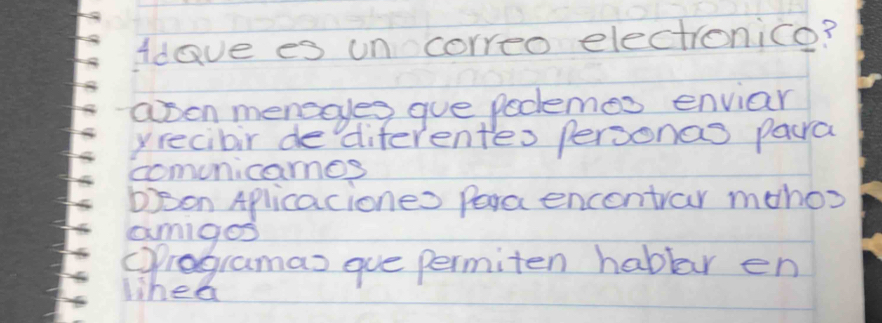 1¿que es un correo electronico?
a)son mensajes que podemos enviar
y recibir de diferentes personas para
comunicarnos
b)son Aplicaciones para encontrar muchos
amigos
c)Programas que permiten hablar en
linea